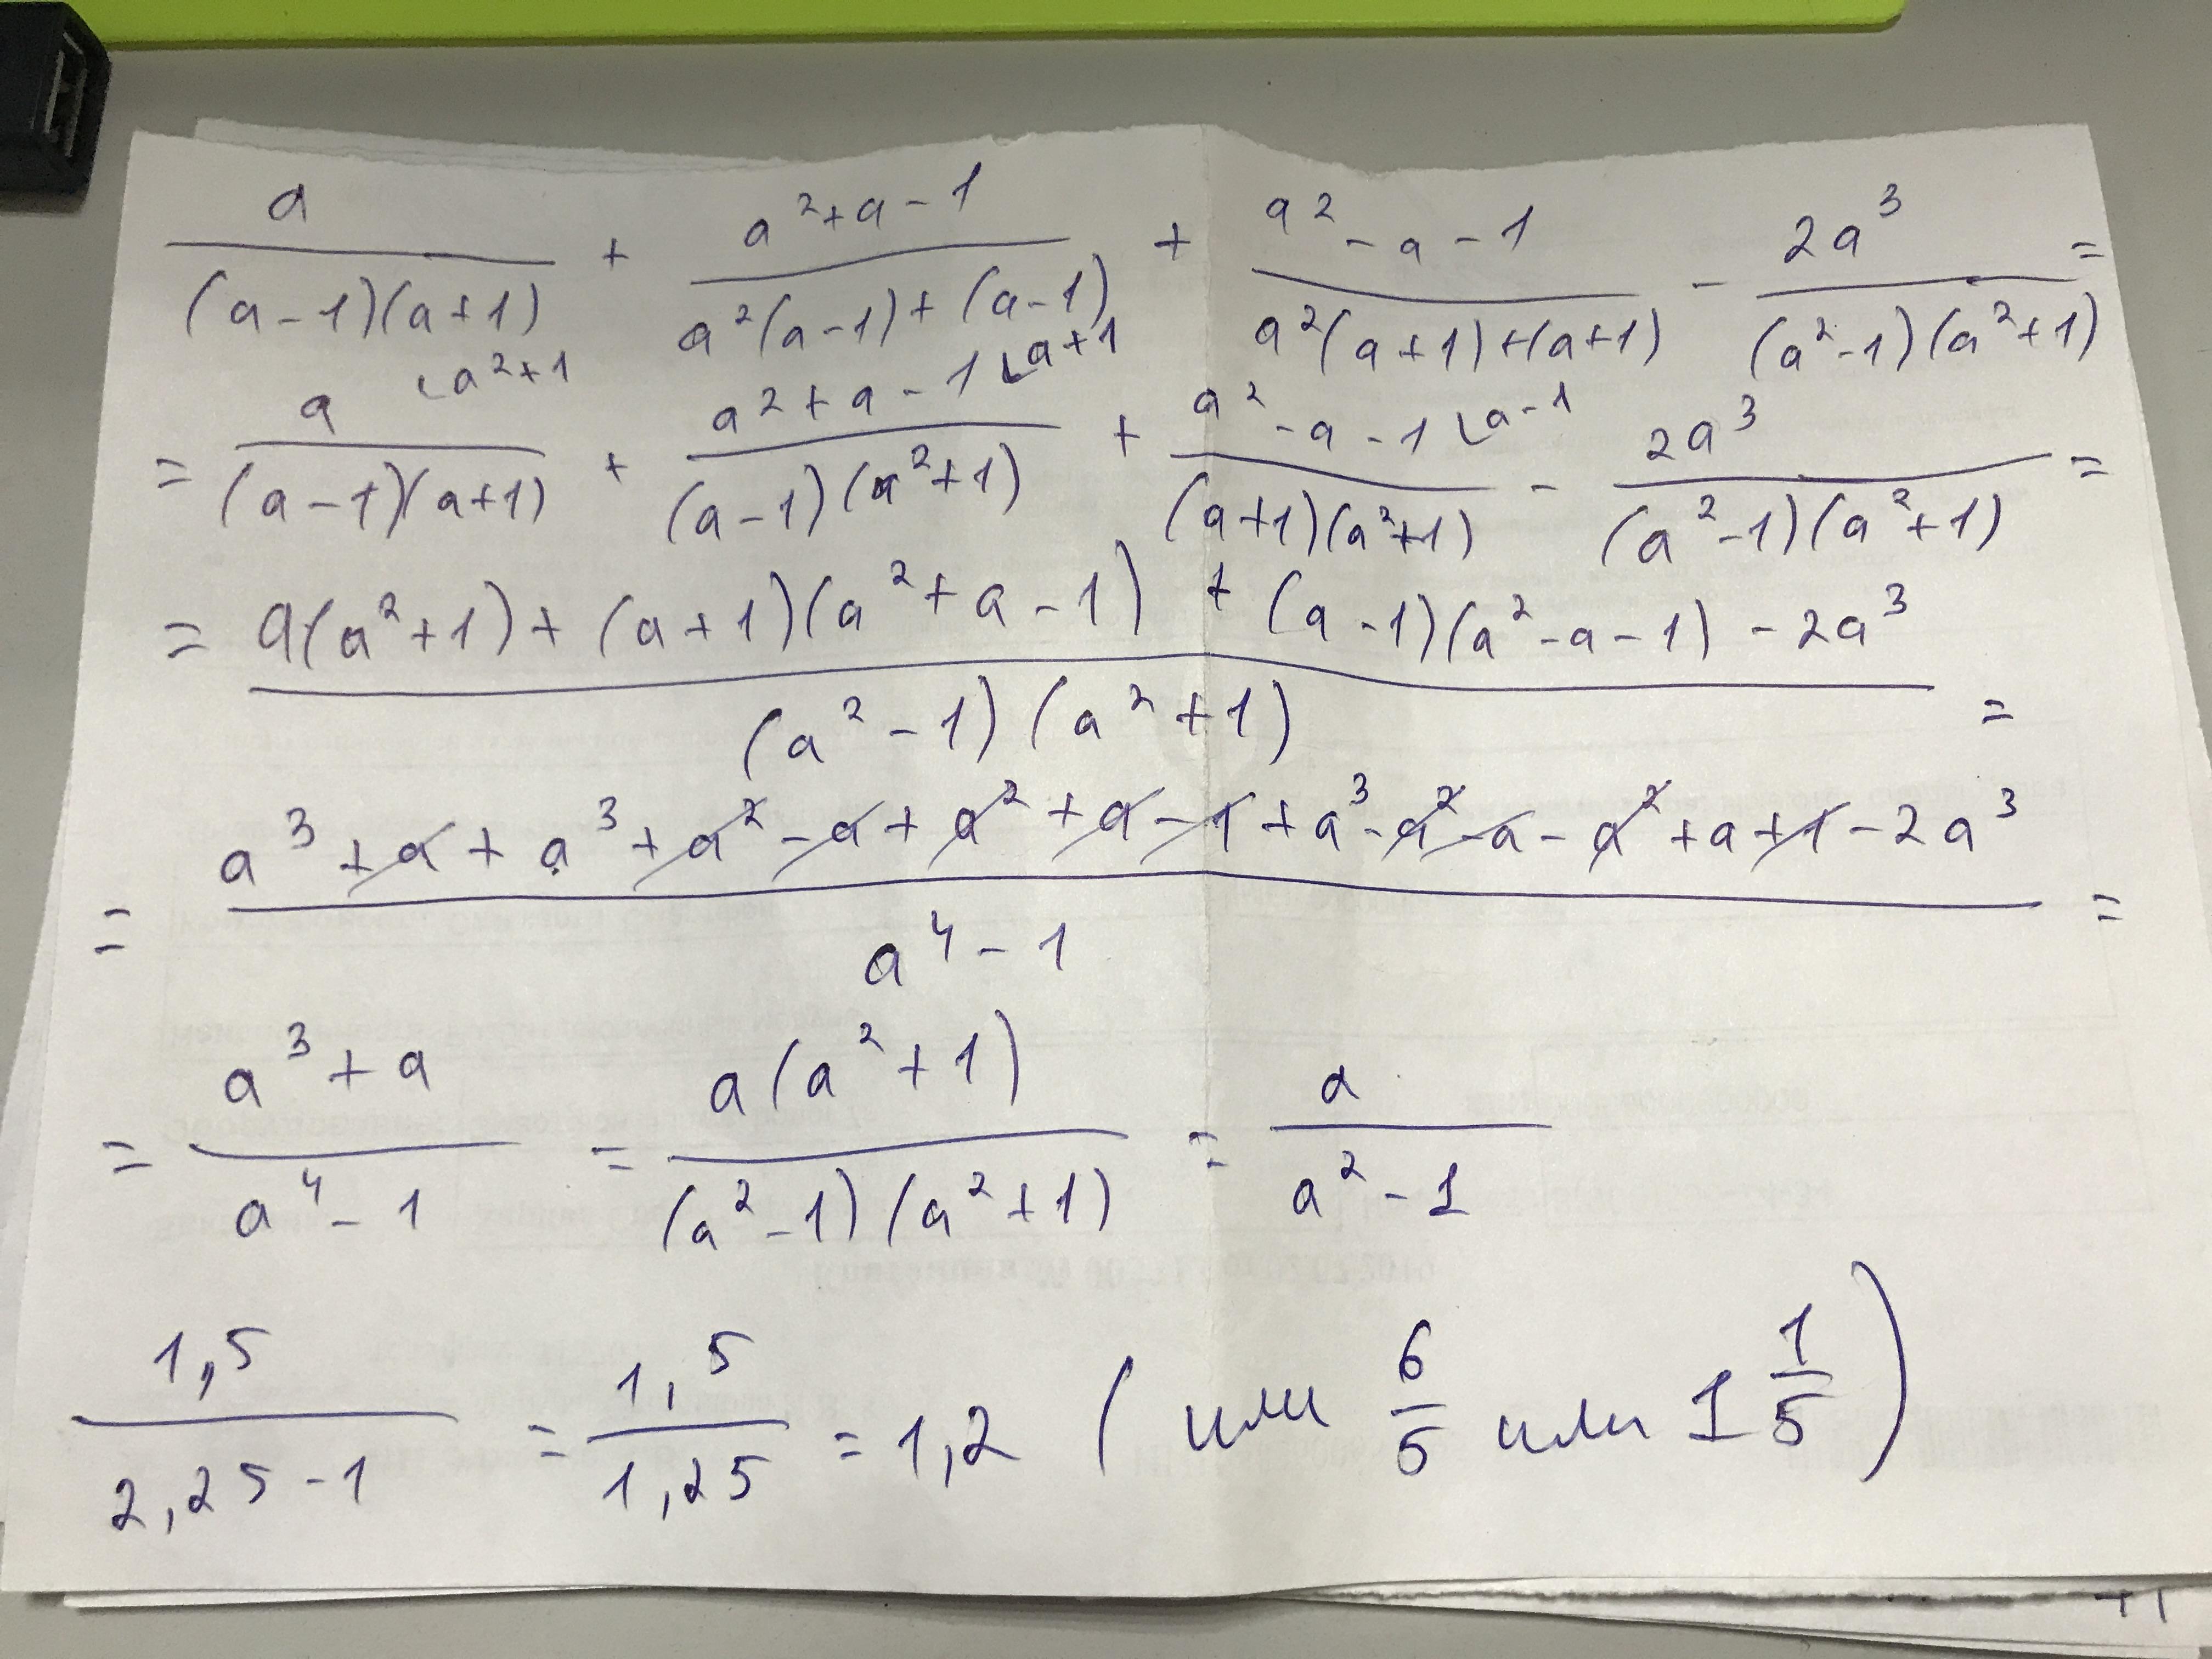 a/((a-1)(a+1)) + (a²+a-1)/(a²(a-1)+(a-1)) + (a²-a-1)/(a²(a+1)+(a+1)) - 2a³/((a²-1)(a²+1)) =
= a ⌞a²+1/((a-1)(a+1)) + a²+a-1 ⌞a+1/((a-1)(a²+1)) + a²-a-1 ⌞a-1/((a+1)(a²+1)) - 2a³/((a²-1)(a²+1)) =
= (a(a²+1)+(a+1)(a²+a-1)+(a-1)(a²-a-1)-2a³)/((a²-1)(a²+1)) =
= (a³+a+a³+a²-a+a²+a-1+a³-a²-a-a²+a+1-2a³)/(a⁴-1) =
= (a³+a)/(a⁴-1) = a(a²+1)/((a²-1)(a²+1)) = a/(a²-1)
1,5/(2,25-1) = 1,5/1,25 = 1,2 (или 6/5 или 1 1/5)